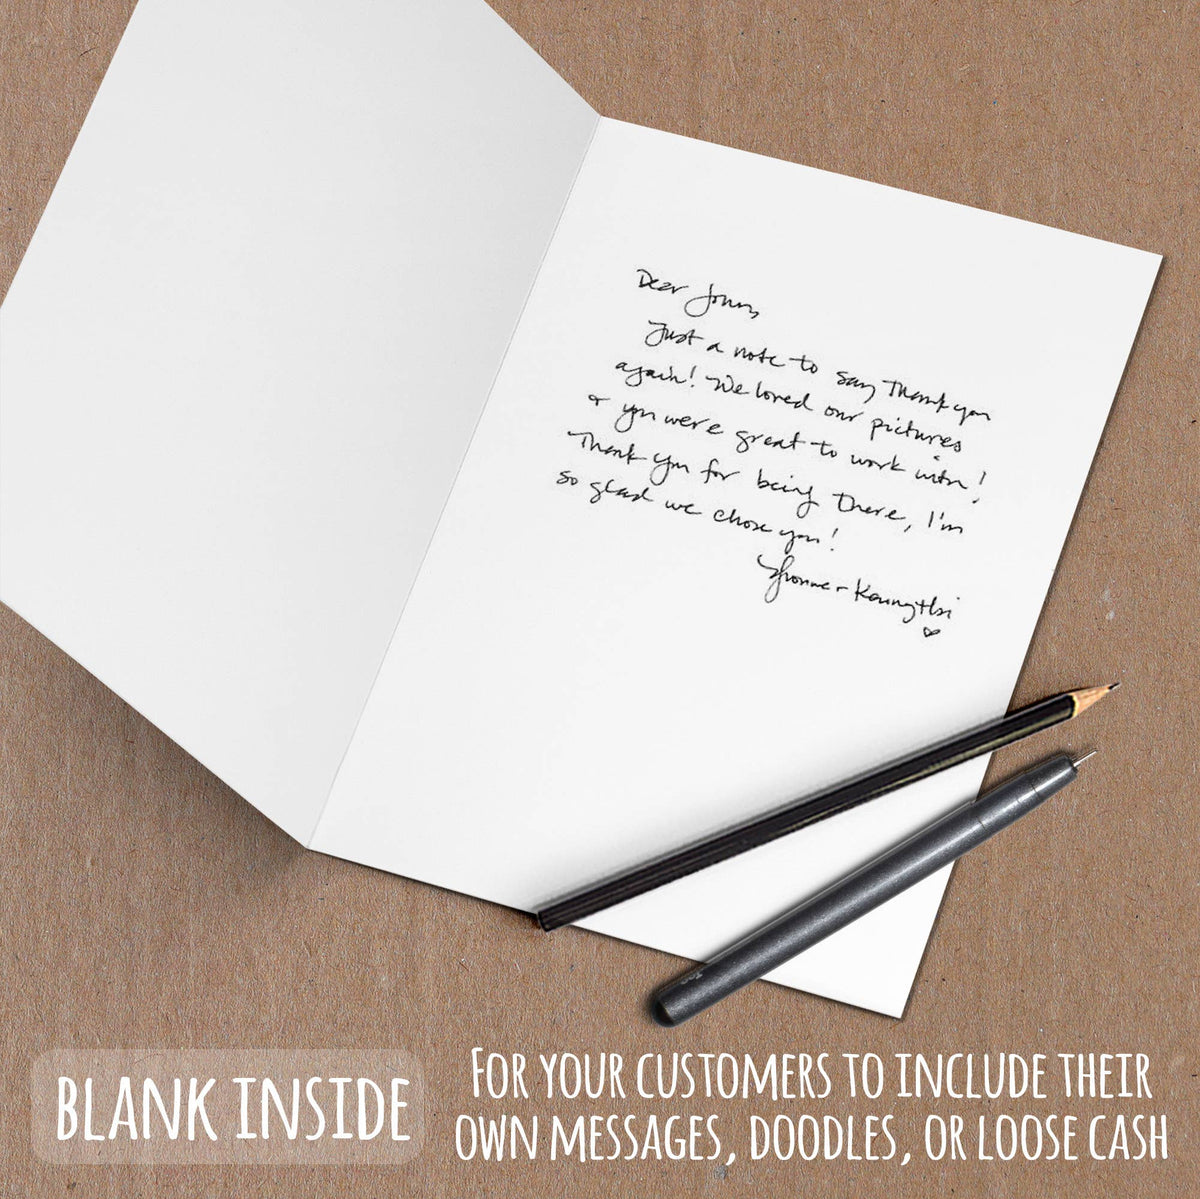 Dear
Just a note to say thank you
again! We loved our pictures
& you were great to work with!
Thank you for being there, I'm
so glad we chose you!
Yvonne +
BLANK INSIDE
FOR YOUR CUSTOMERS TO INCLUDE THEIR
OWN MESSAGES, DOODLES, OR LOOSE CASH